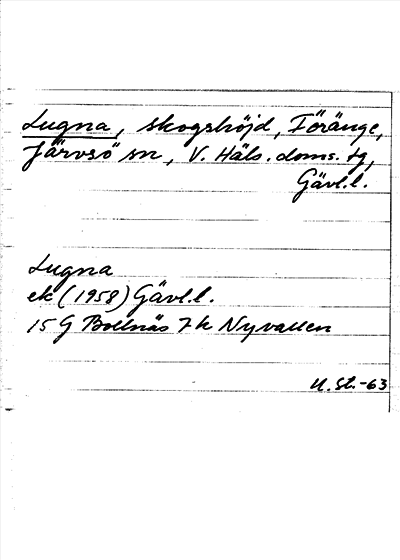 Lugna, skogshöjd, Föränge,
Järvsö sn, V. Häls. doms. tg,
Gävl.l.
Lugna
ek (1958) Gävl.l.
15 G Bollnäs 7 h Nyvallen
U. St.-63